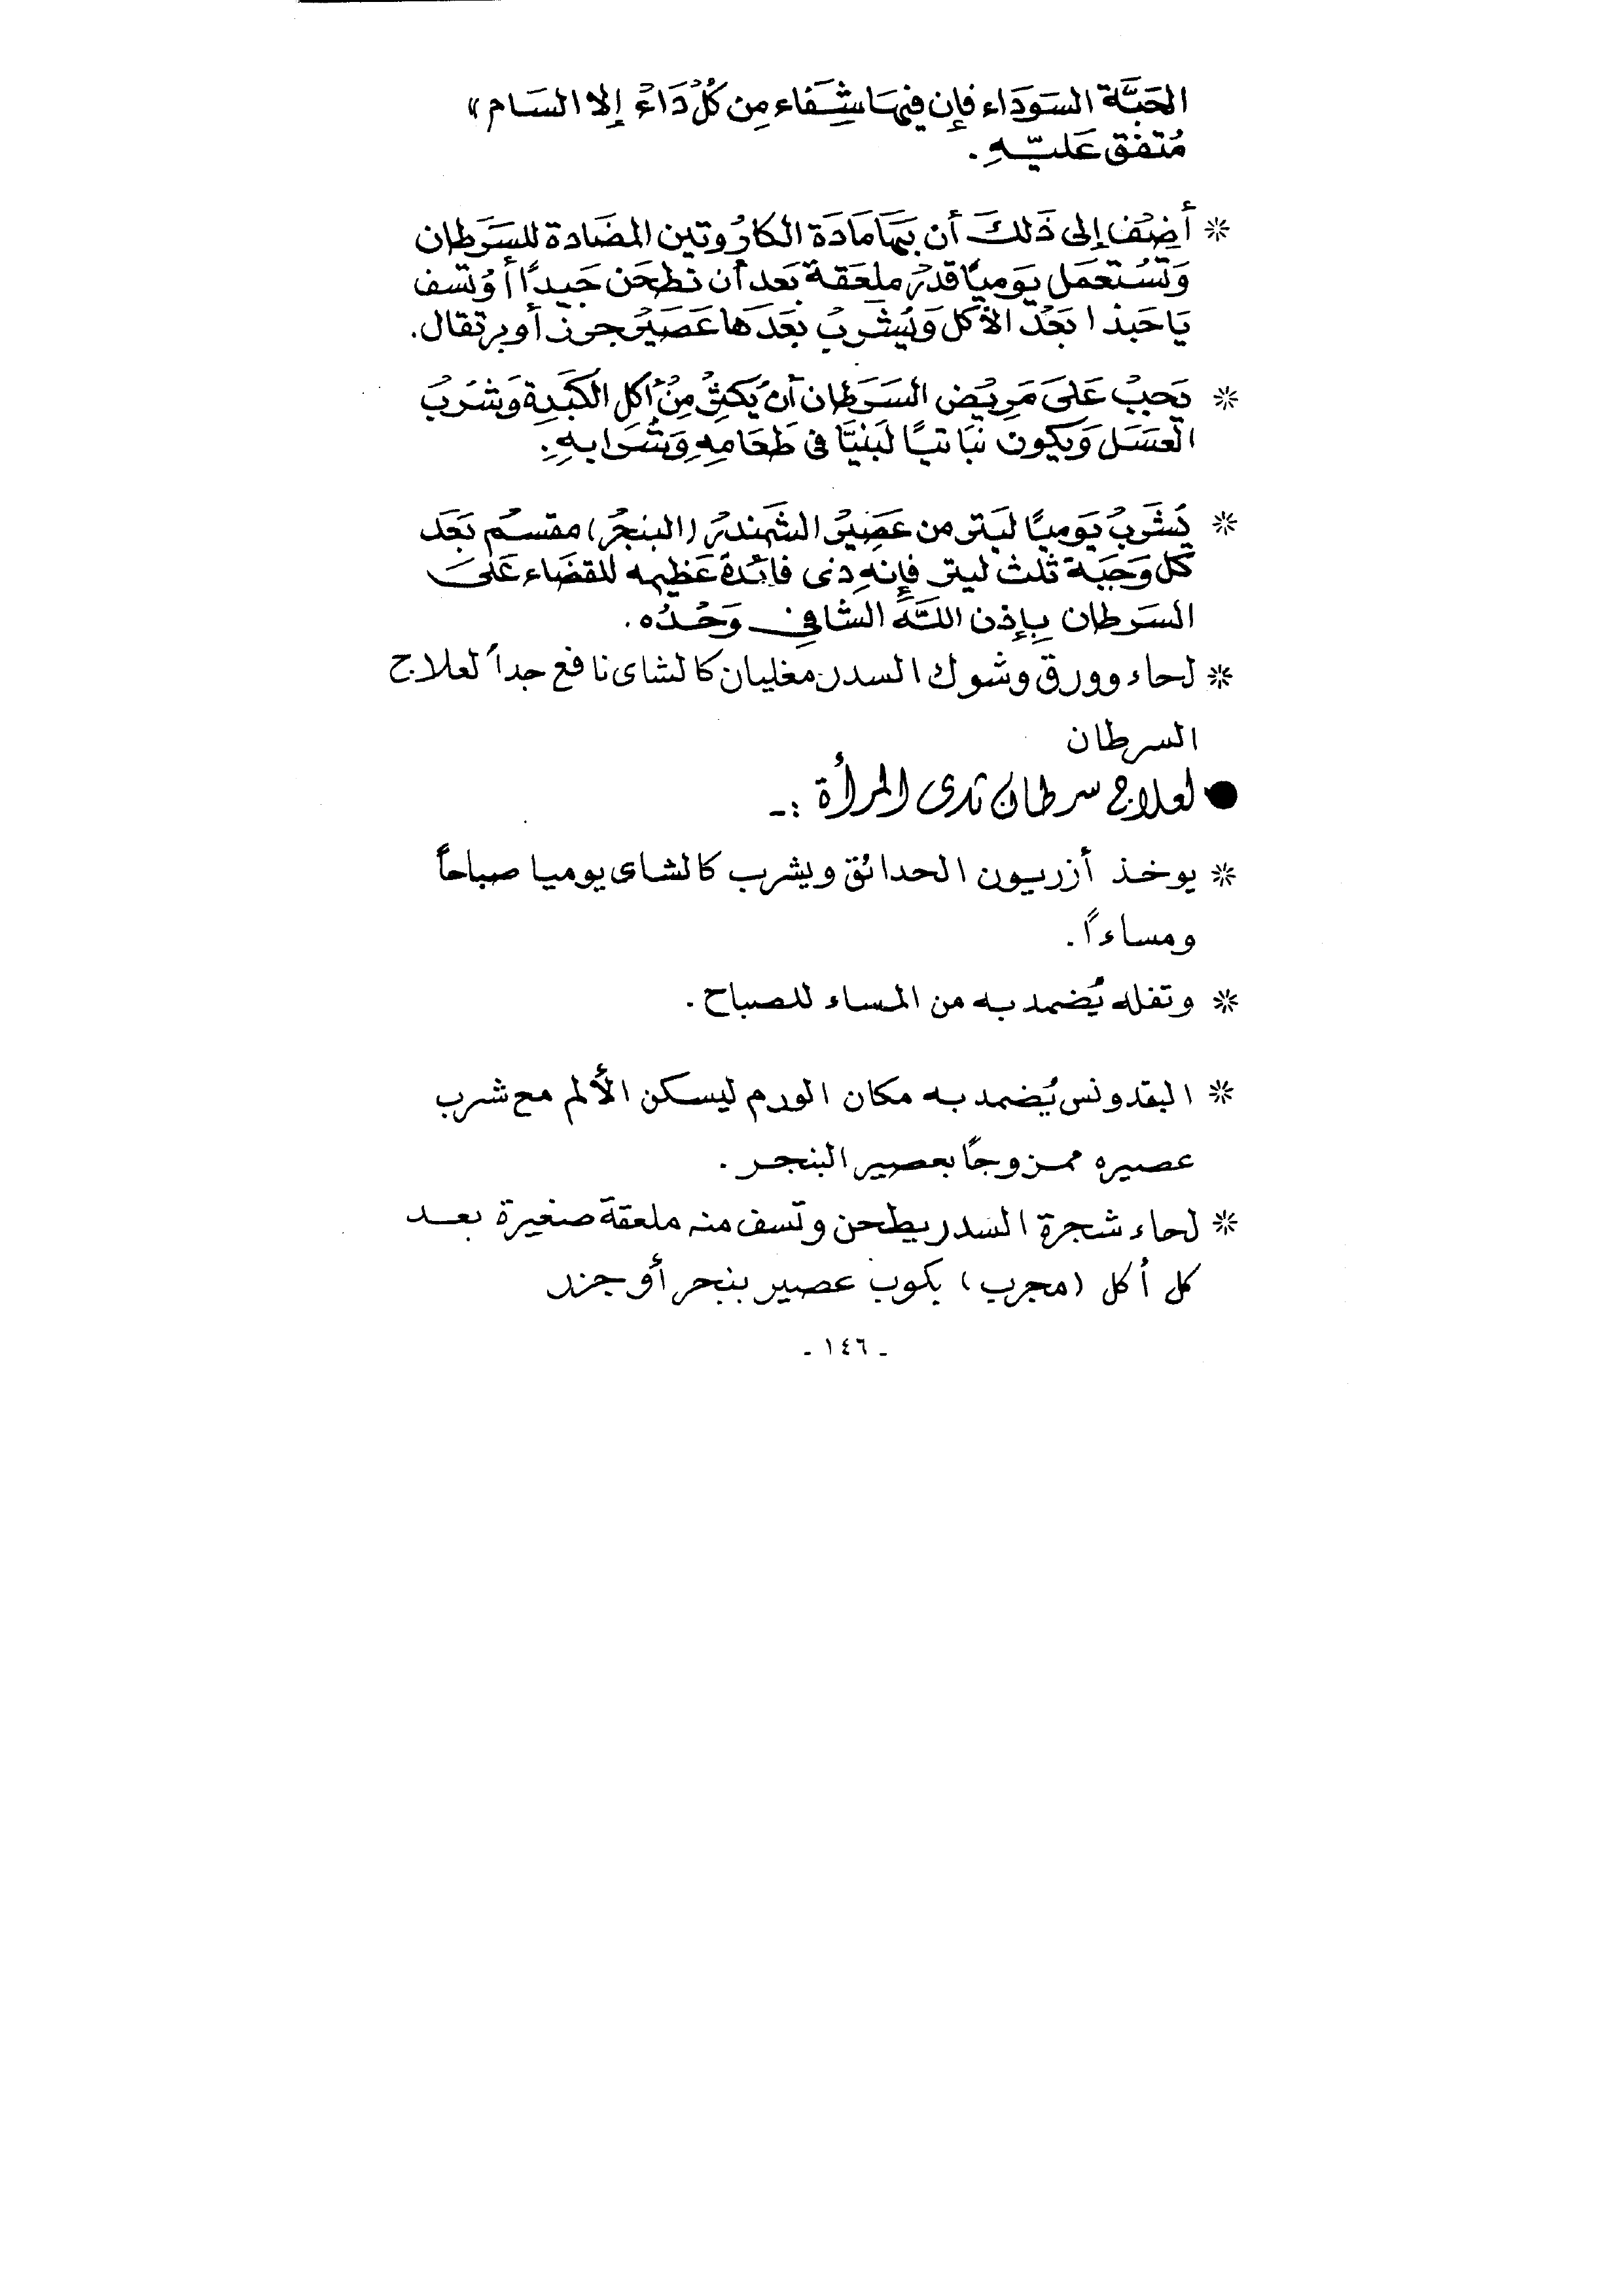 الحَبَّة السَوَدَاء فإِن فيهَا شِفَاء مِن كُلْ دَاءْ إِلا السَام»
مُتفَق عَليّهِ .
* أضِف إلى ذَلكَ أن بهَا مَادَة الكارُوتين المضَادة للسَرَطان
وَتسُتعمَل يَوَميًا قدرْ ملعَقة بَعد أن تطحَن جَيدًا أوُتسف
يَاحَبذا بَعْد الأكل وَيُشَربُ بعَدَها عَصَيرُ جزر أو برتقال.
* يَجبْ عَلىَ مَريُض السَرَطان أن يُكثِرْ مِنْ أكل الكَبَدِة وَشرُبَ
العسَل وَيكون نبَاتيًا لبَنيًا فى طَعَامِهِ وَشَرَابهِ.
* يُشَربُ يَوَميًا ليَتر من عَصِيرُ الشَمندرُ (البنجرُ) مقسمُ بَعَد
كل وَجَبة ثلث ليتر فإِنهِ ذى فائدةَ عَظيمه للقضَاء عَلىَ
السَرطان بِإِذن اللَّهَ الشافِى وَحْدُه .
* لحاء وورق وشوك السدر مغليان كالشاى نافع جداً لعلاج
السرطان
● لعلاج سرطان ثدى المرأة :ـ
* يوخذ أزريون الحدائق ويشرب كالشاى يوميا صباحاً
ومساءاً .
* وتفله يُضمد به من المساء للصباح .
* البقدونس يُضمد به مكان الورم ليسكن الألم مع شرب
عصيره ممزوجًا بعصير البنجر .
* لحاء شجرة السدر يطحن وتسف منه ملعقة صغيرة بعد
كل أكل (مجرب) بكوب عصير بنجر أو جزر
- ١٤٦ -